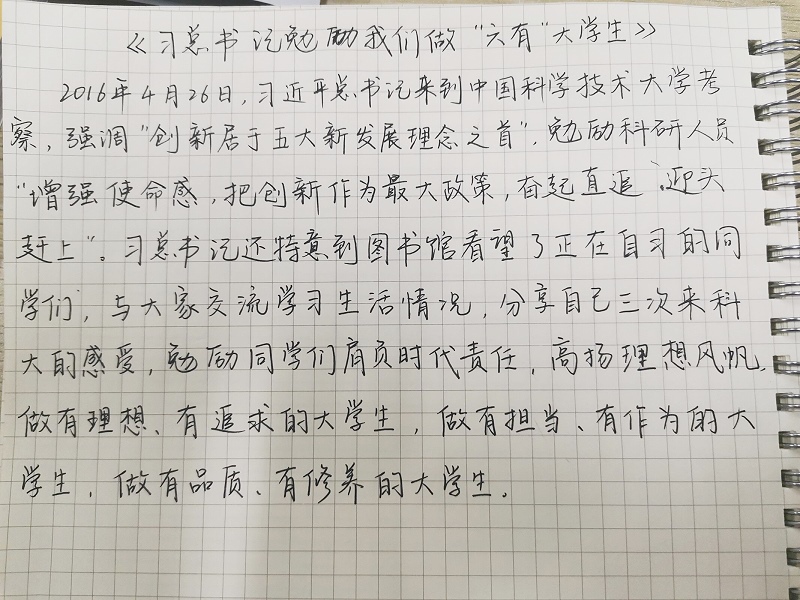 《习总书记勉励我们做“六有”大学生》
2016年4月26日,习近平总书记来到中国科学技术大学考
察,强调“创新居于五大新发展理念之首”,勉励科研人员
“增强使命感,把创新作为最大政策,奋起直追、迎头
赶上”。习总书记还特意到图书馆看望了正在自习的同
学们,与大家交流学习生活情况,分享自己三次来科
大的感受,勉励同学们肩负时代责任,高扬理想风帆,
做有理想、有追求的大学生,做有担当、有作为的大
学生,做有品质、有修养的大学生.